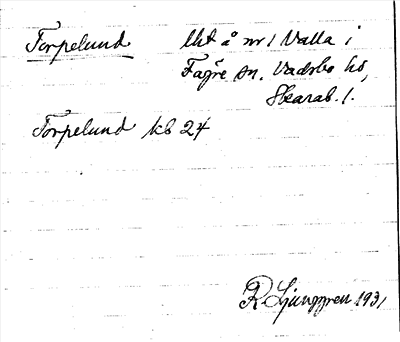 Torpelund lht å nr 1 Valla i
Fägre sn. Vadsbo hd,
Skarab. l.
Torpelund kb 24
R Ljunggren 1931